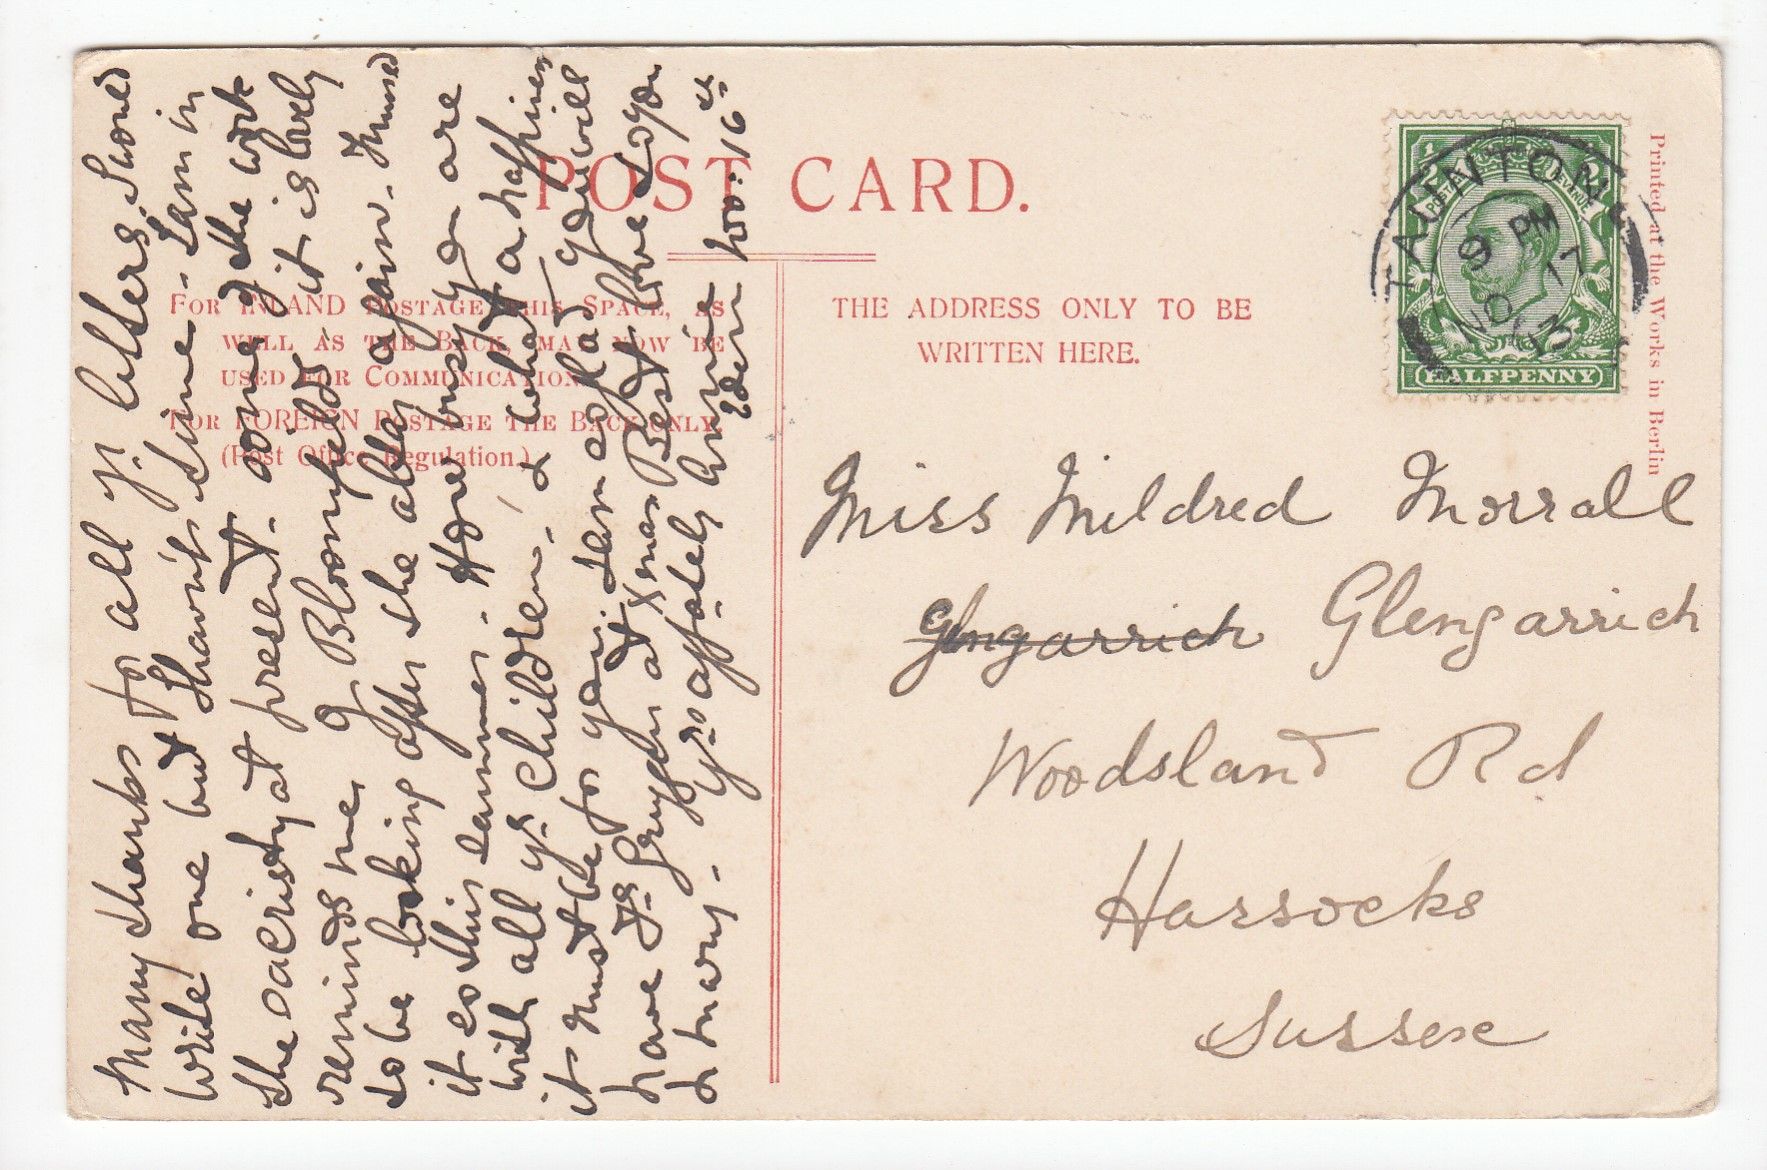 Many thanks for all yr. letters. I wonед
write one but I havn't time - I am in
the sacristy at present - doing the work
reminds me of Bloomfield - it is lovely
to be looking after the altar again.
it so this summer. How busy you are
with all yr. children, & what a happiness
it must be for you. I am so glad you will
have yr. at Xmas. Best love to you
& Mary. Yrs. affately Annie
Nov: 16th
POST CARD.
FOR INLAND POSTAGE THIS SPACE, AS
WELL AS THE BACK, MAY NOW BE
USED FOR COMMUNICATION.
FOR FOREIGN POSTAGE THE BACK ONLY.
(Post Office Regulation.)
THE ADDRESS ONLY TO BE
WRITTEN HERE.
TAUNTON
9 PM
NO 17
13
POSTAGE REVENUE
HALFPENNY
Printed at the Works in Berlin
Miss Mildred Morrall
Glengarrich Glengarrich
Woodsland Rd
Hassocks
Sussex